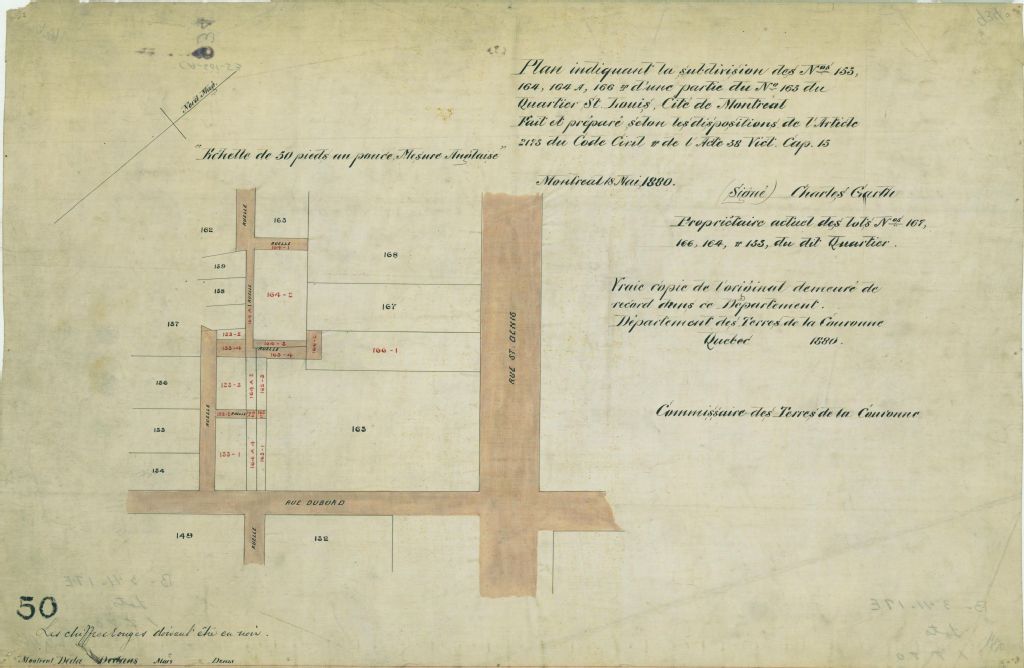 Plan indiquant la subdivision des Nos 155,
164, 164 A, 166 & d'une partie du No 165 du
Quartier St. Louis, Cité de Montréal
Fait et préparé selon les dispositions de l'Article
2175 du Code Civil & de l'Acte 38 Vict. Cap. 15
Nord Mag.
"Echelle de 50 pieds au pouce, Mesure Anglaise"
Montréal 18 Mai 1880.
(Signé) Charles Garth
Propriétaire actuel des lots Nos 167,
166, 164, & 155, du dit Quartier.
Vraie copie de l'original demeuré de
record dans ce Département.
Département des Terres de la Couronne
Quebec 1880.
Commissaire des Terres de la Couronne
RUELLE
163
162
RUELLE
164-1
168
159
158
164 A 1 RUELLE
164-2
167
157
155-5
155-4
164-3
RUELLE
165-4
166-2
166-1
RUE ST. DENIS
156
155-3
164 A 2
165-3
RUELLE
155-2
RUELLE
153
165
154
155-1
164 A 4
165-1
RUE DUBORD
149
RUELLE
152
50
Les chiffres rouges doivent être en noir.
Montreal